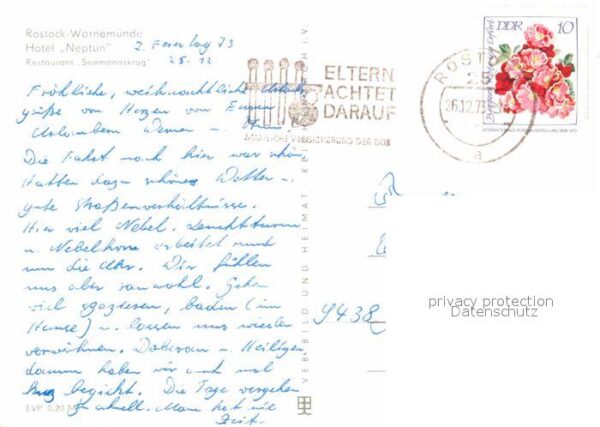 Rostock-Warnemünde
Hotel „Neptun"
Restaurant „Seemannskrug"
2. Feiertag 73
25.12
Fröhliche, weihnachtliche
grüße von Herzen von Euren
Urlaubern Werner u.
Die Fahrt nach hier war schön
Hatten dazu schönes Wetter u.
gute Straßenverhältnisse.
Hier viel Nebel. Leuchtturm
u. Nebelhorn arbeitet rund
um die Uhr. Wir fühlen
uns aber sauwohl. Gehen
viel spazieren, baden (im
Hause) u. lassen uns wieder
verwöhnen. Doberan u. Heiligen
damm haben wir auch mal
kurz besucht. Die Tage vergehen
so schnell. Man hat nie
Zeit.
EVP 0.20 M
VEB BILD UND HEIMAT REICHENBACH I.V.
ELTERN
ACHTET
DARAUF
STAATLICHE VERSICHERUNG DER DDR
ROSTOCK
26.12.73
a
DDR 10
INTERNATIONALE ROSENAUSSTELLUNG 1972
9438
privacy protection
Datenschutz